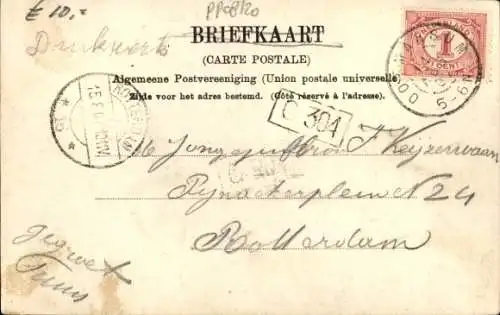 £ 10,=
PP08120
Drukwerk
BRIEFKAART
(CARTE POSTALE)
Algemeene Postvereeniging (Union postale universelle)
Zijde voor het adres bestemd. (Côté réservé à l'adresse).
NEDERLAND
1
CENT
5-6N
C 304
ROTTERDAM
Mejongejuffrouw J Keijzerwaan
Pijnackerplein No 24
Rotterdam
gegroet